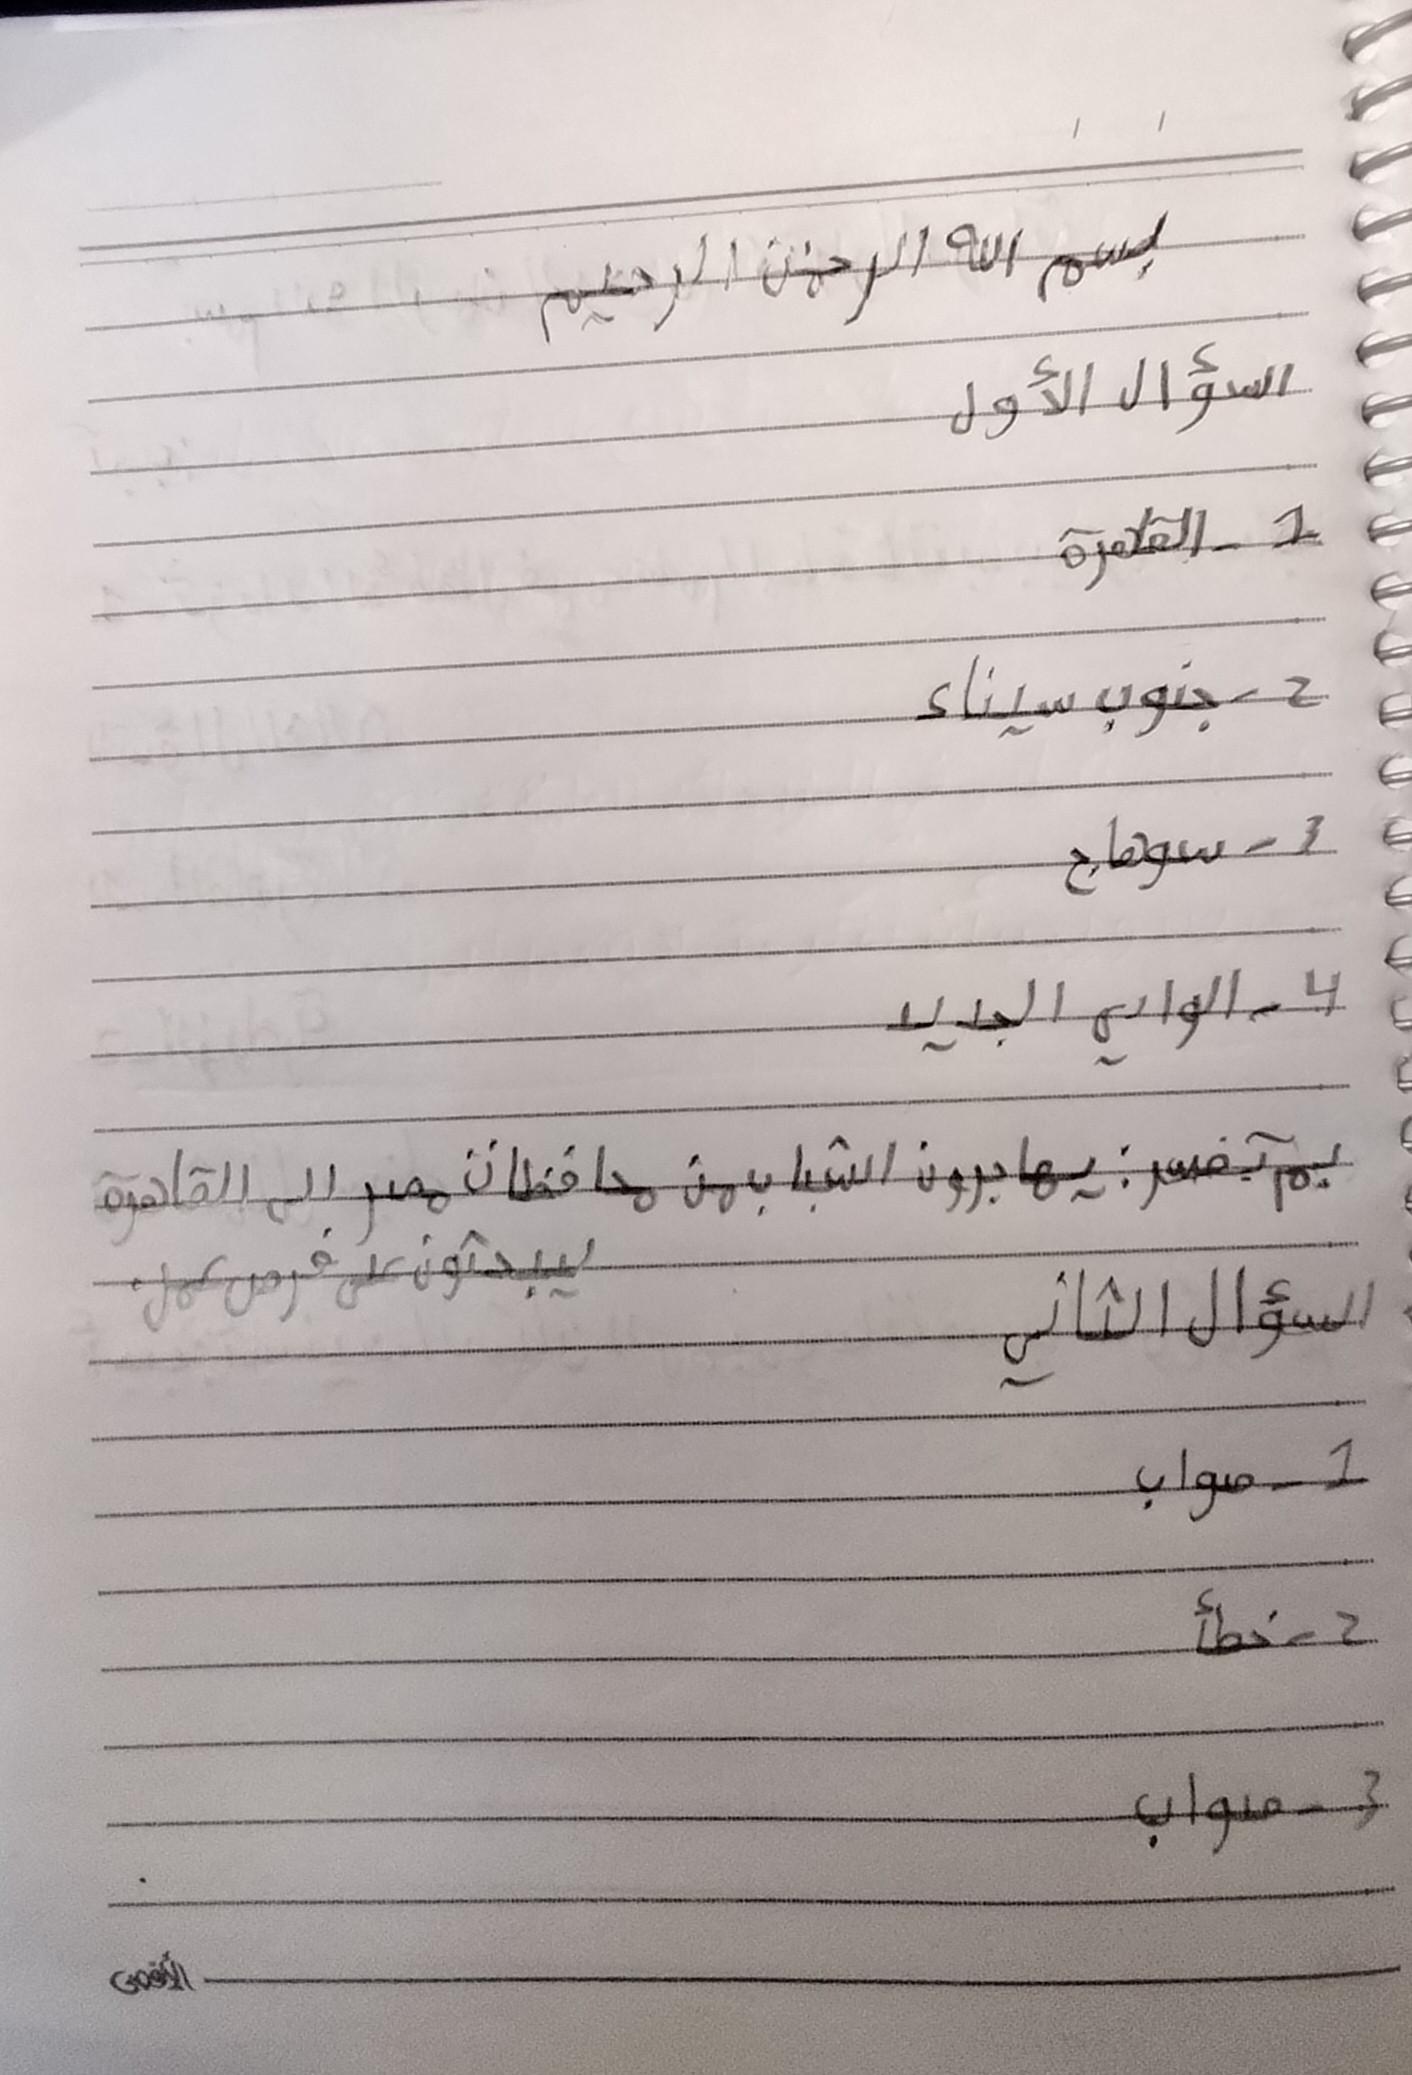 بسم الله الرحمن الرحيم
السؤال الأول
1 - القاهرة
2 - جنوب سيناء
3 - سوهاج
4 - الوادي الجديد
بم تفسر: يهاجرون الشباب من محافظات مصر الى القاهرة
ليبحثون على فرص عمل.
السؤال الثاني
1 - صواب
2 - خطأ
3 - صواب
الأقصى